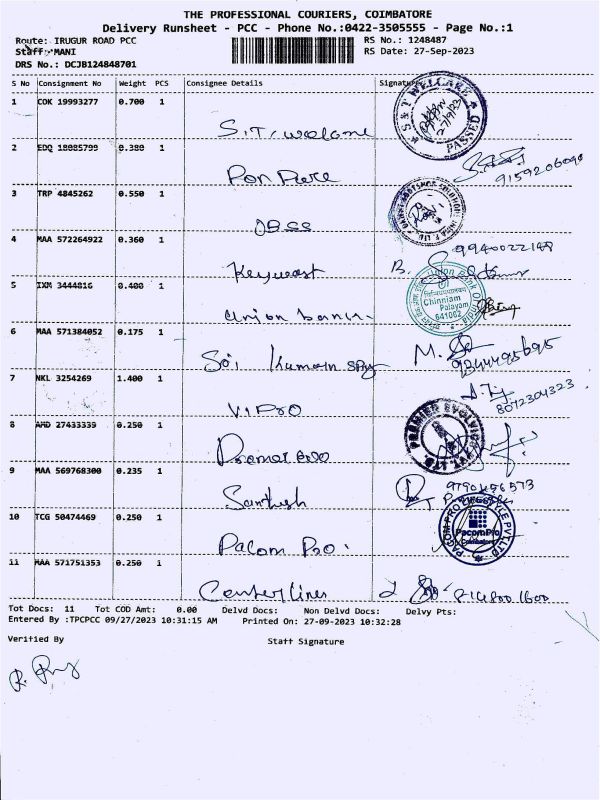 THE PROFESSIONAL COURIERS, COIMBATORE
Delivery Runsheet - PCC - Phone No.:0422-3505555 - Page No.:1
Route: IRUGUR ROAD PCC RS No.: 1248487
Staff: MANI RS Date: 27-Sep-2023
DRS No.: DCJB124848701
S No Consignment No Weight PCS Consignee Details Signature
1 COK 19993277 0.700 1
S.T. welcome
S & T WELCARE PASSED 27/9/23
2 EDQ 18085799 0.380 1
Pon Pure 9159206090
3 TRP 4845262 0.550 1
4 MAA 572264922 0.360 1
9940022148
Keywest B.
5 IXM 3444816 0.400 1
Union Bank Of India Chinniam Palayam 641062
union bank
6 MAA 571384052 0.175 1
Sri Kumaran M. 9344495695
7 NKL 3254269 1.400 1
VIPRO 8072304323
8 AMD 27433339 0.250 1
PREMIER EVOLVICS PVT. LTD
9 MAA 569768300 0.235 1
Santhosh 9790456573
10 TCG 50474469 0.250 1
Pacom Pro.
PACOM PRO LIFESTYLE PVT LTD PacomPro Coimbatore
11 MAA 571751353 0.250 1
Center lines
Tot Docs: 11 Tot COD Amt: 0.00 Delvd Docs: Non Delvd Docs: Delvy Pts:
Entered By :TPCPCC 09/27/2023 10:31:15 AM Printed On: 27-09-2023 10:32:28
Verified By Staff Signature